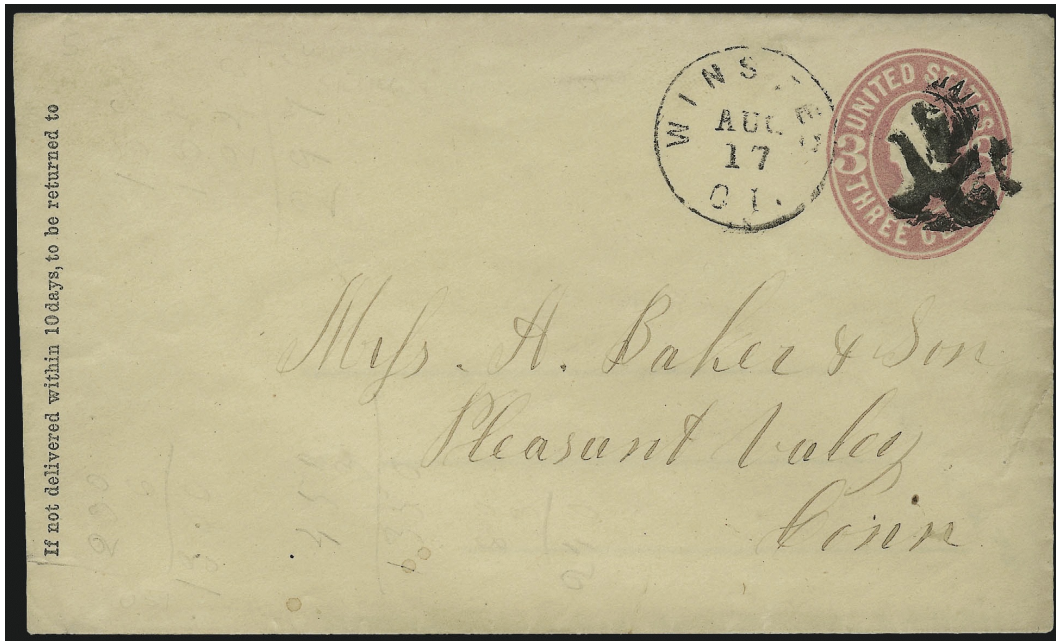 If not delivered within 10 days, to be returned to
WINSTED
AUG
17
CT.
UNITED STATES
3
THREE CE
Mess. H. Baker & Son
Pleasant Valey
Conn